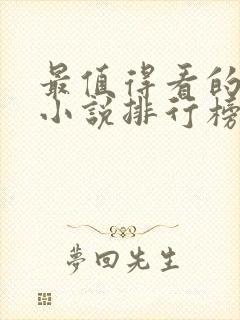 最值得看的
小说排行榜
夢回先生